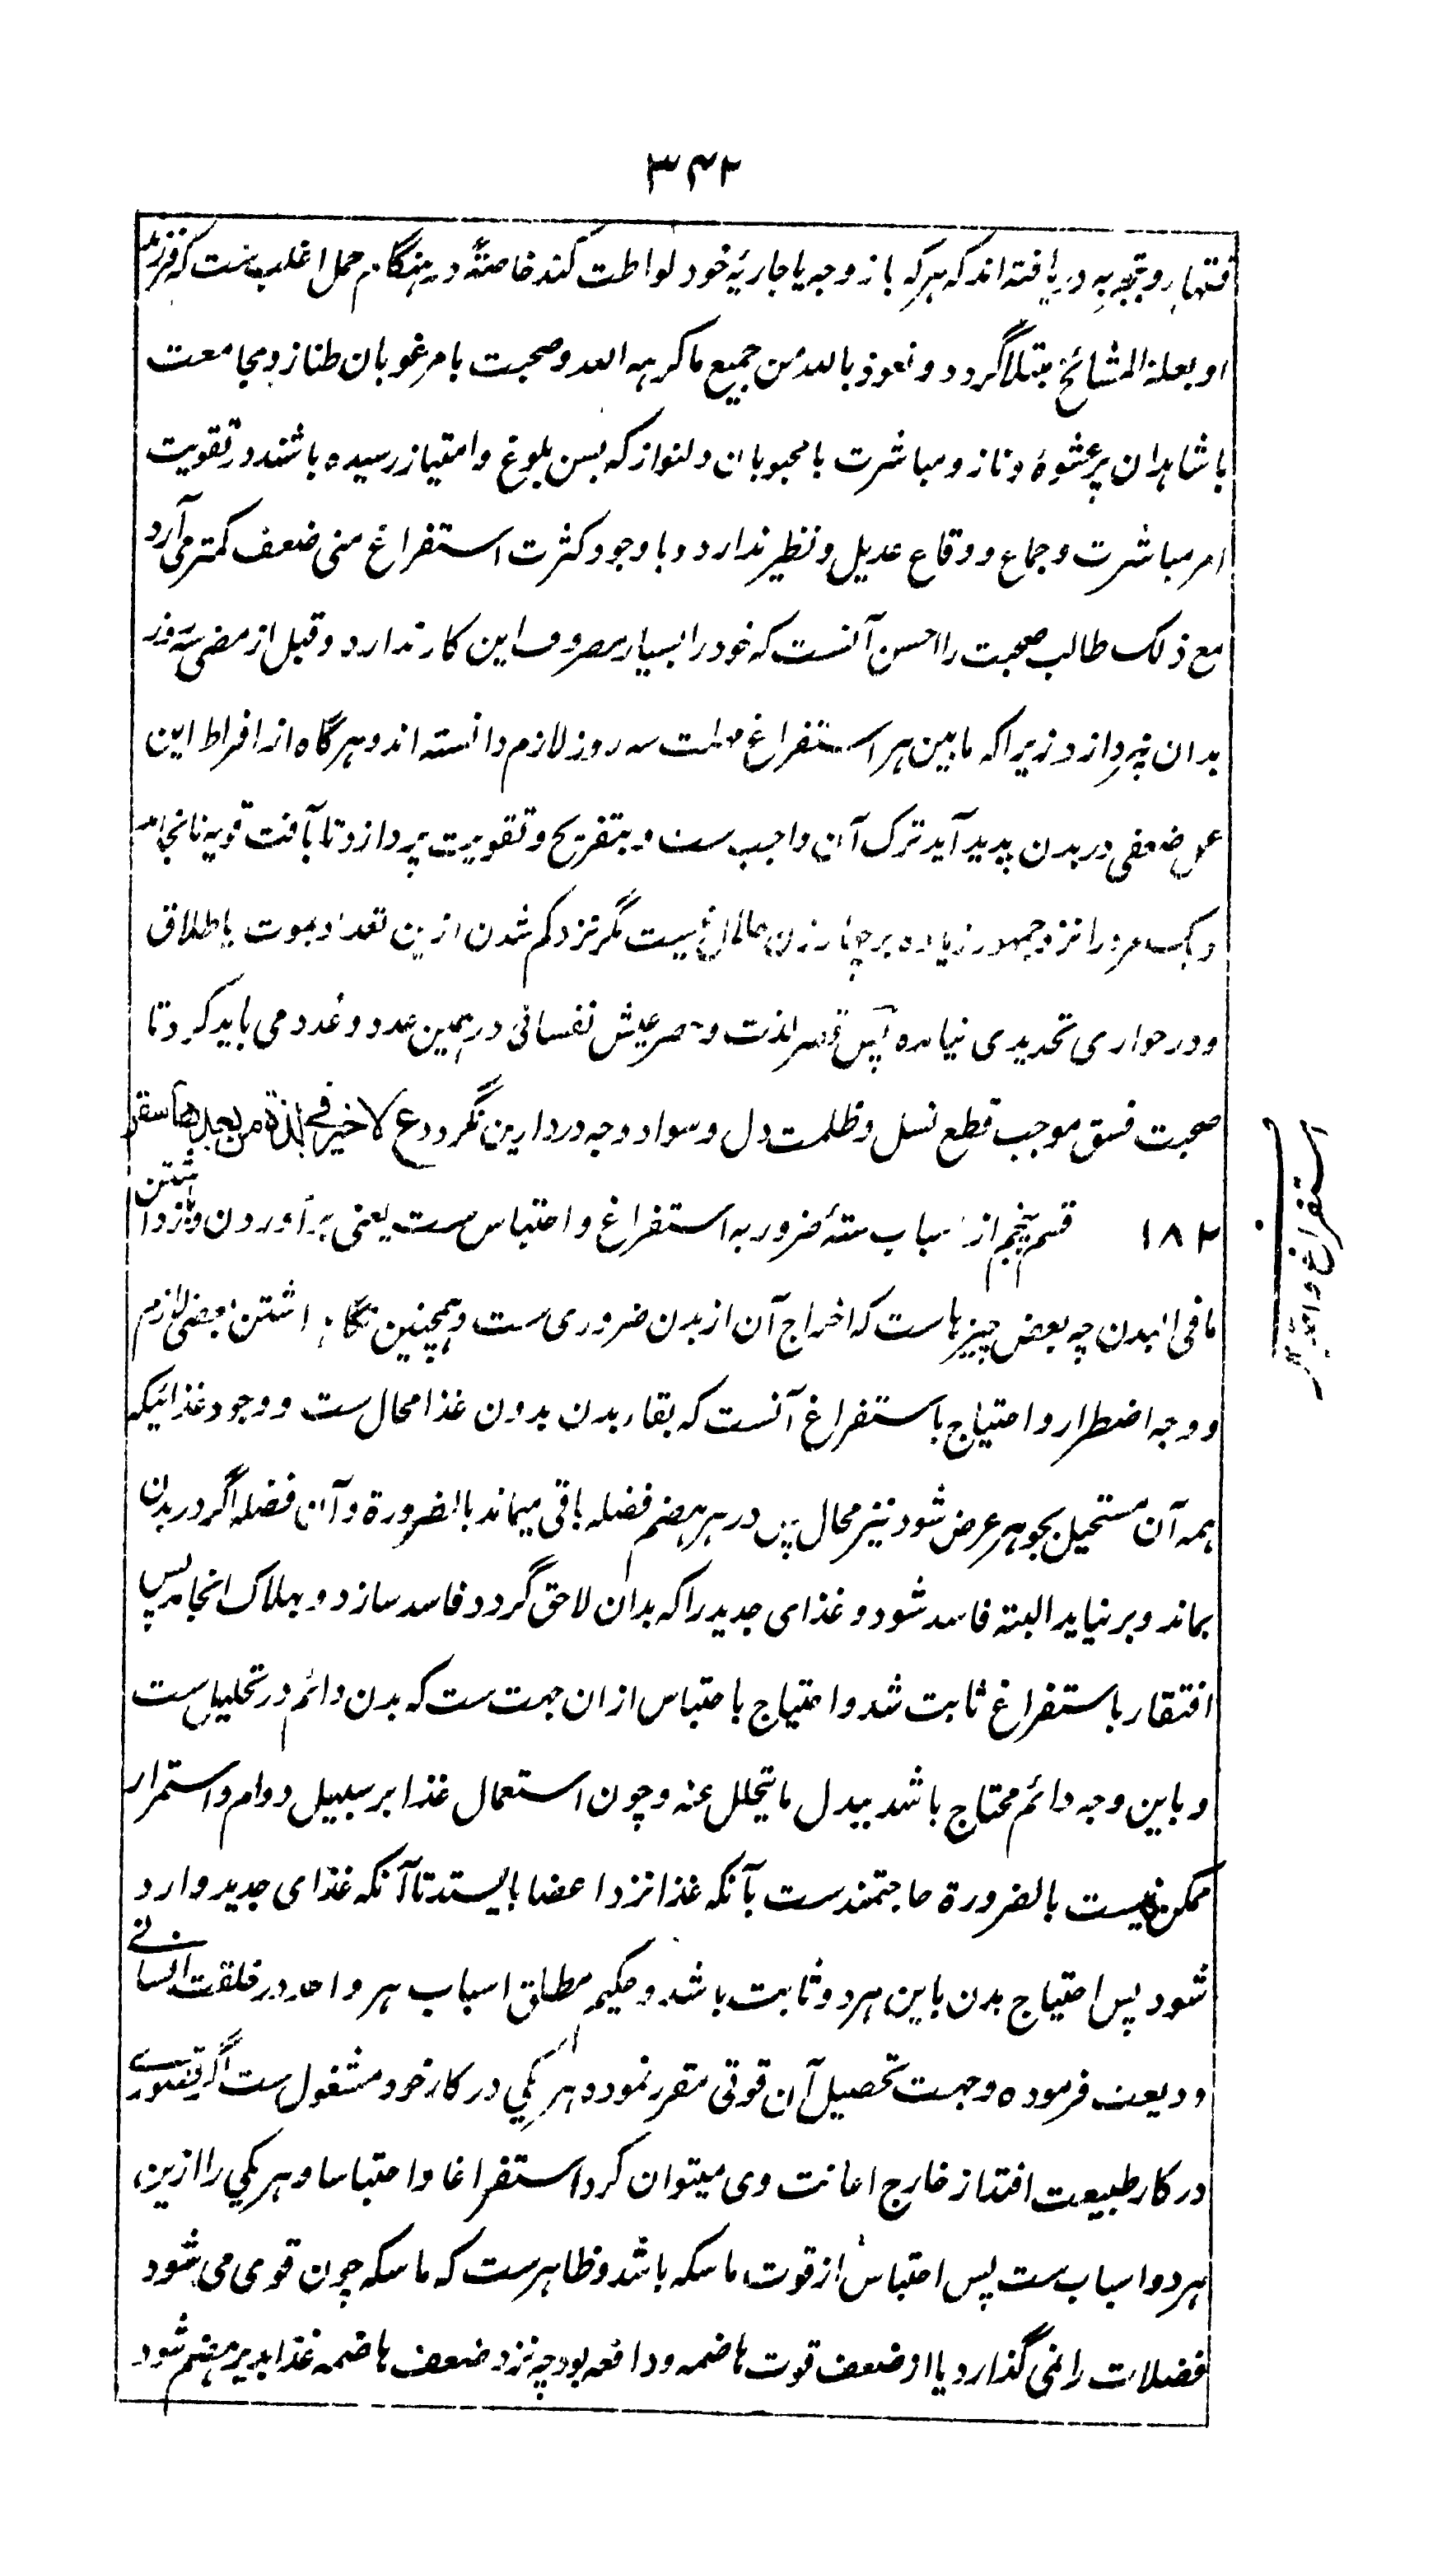 ۳۴۲
و بتجربه دریافته اند که هر که با زوجه یا جاریهٔ خود لواطت کند خاصةً در هنگام حمل اغلب ست که فرزند
او بعلة المشائخ مبتلا گردد و نعوذ بالله من جمیع ما کرهه الله و صحبت با مرغوبان طناز و مجامعت
با شاهدان پر عشوهٔ و ناز و مباشرت با محبوبان دلنواز که بسن بلوغ و امتیاز رسیده باشند در تقویت
امر مباشرت و جماع و وقاع عدیل و نظیر ندارد و با وجود کثرت استفراغ منی ضعف کمتر می آرد
مع ذلک طالب صحبت را احسن آنست که خود را بسیار مصروف این کار ندارد و قبل از مضی سه روز
بدان نپردازد زیرا که مابین هر استفراغ مهلت سه روز لازم دانسته اند و هرگاه از افراط این
عمل ضعفی در بدن پدید آید ترک آن واجب ست و بتفریح و تقویت پردازد تا بآفت قویه نانجامد
و یک مرد را نزد جمهور زیاده بر چهار زن حلال نیست مگر نزد کم شدن ازین تعداد بموت یا طلاق
و در جواری تحدیدی نیامده پس قصر لذت و حصر عیش نفسانی در همین عدد و غدد می باید کرد تا
صحبت فسق موجب قطع نسل و ظلمت دل و سواد وجه در دارین نگردد ع لا خیر فی لذة من بعدها سقر
۱۸۲ قسم پنجم از اسباب ستهٔ ضروریه استفراغ و احتباس ست یعنی برآوردن و بازداشتن
ما فی البدن چه بعض چیزها ست که اخراج آن از بدن ضروری ست و همچنین نگاهداشتن بعضی لازم
و وجه اضطرار و احتیاج باستفراغ آنست که بقاء بدن بدون غذا محال ست و وجود غذائیکه
همه آن مستحیل بجوهر عرض شود نیز محال پس در هر هضم فضله باقی میماند بالضرورة و آن فضله اگر در بدن
بماند و برنیاید البته فاسد شود و غذای جدید را که بدان لاحق گردد فاسد سازد و بهلاک انجامد پس
افتقار باستفراغ ثابت شد و احتیاج باحتباس ازان جهت ست که بدن دائم در تحلیل ست
و باین وجه دائم محتاج باشد ببدل ما یتحلل عنه و چون استعمال غذا بر سبیل دوام و استمرار
ممکن نیست بالضرورة حاجتمند ست بآنکه غذا نزد اعضا بایستد تا آنکه غذای جدید وارد
شود پس احتیاج بدن باین هر دو ثابت باشد و حکیم مطلق اسباب هر واحد در خلقت انسانے
ودیعت فرموده و جهت تحصیل آن قوتی مقرر نموده هر یکی در کار خود مشغول ست اگر قصورے
در کار طبیعت افتد از خارج اعانت وی میتوان کرد استفراغا و احتباسا و هر یکی را ازین
هر دو اسباب ست پس احتباس از قوت ماسکه باشد و ظاهر ست که ماسکه چون قوی می شود
فضلات را نمی گذارد یا از ضعف قوت هاضمه و دافعه بود چه نزد ضعف هاضمه غذا بدیر هضم شود
استفراغ و